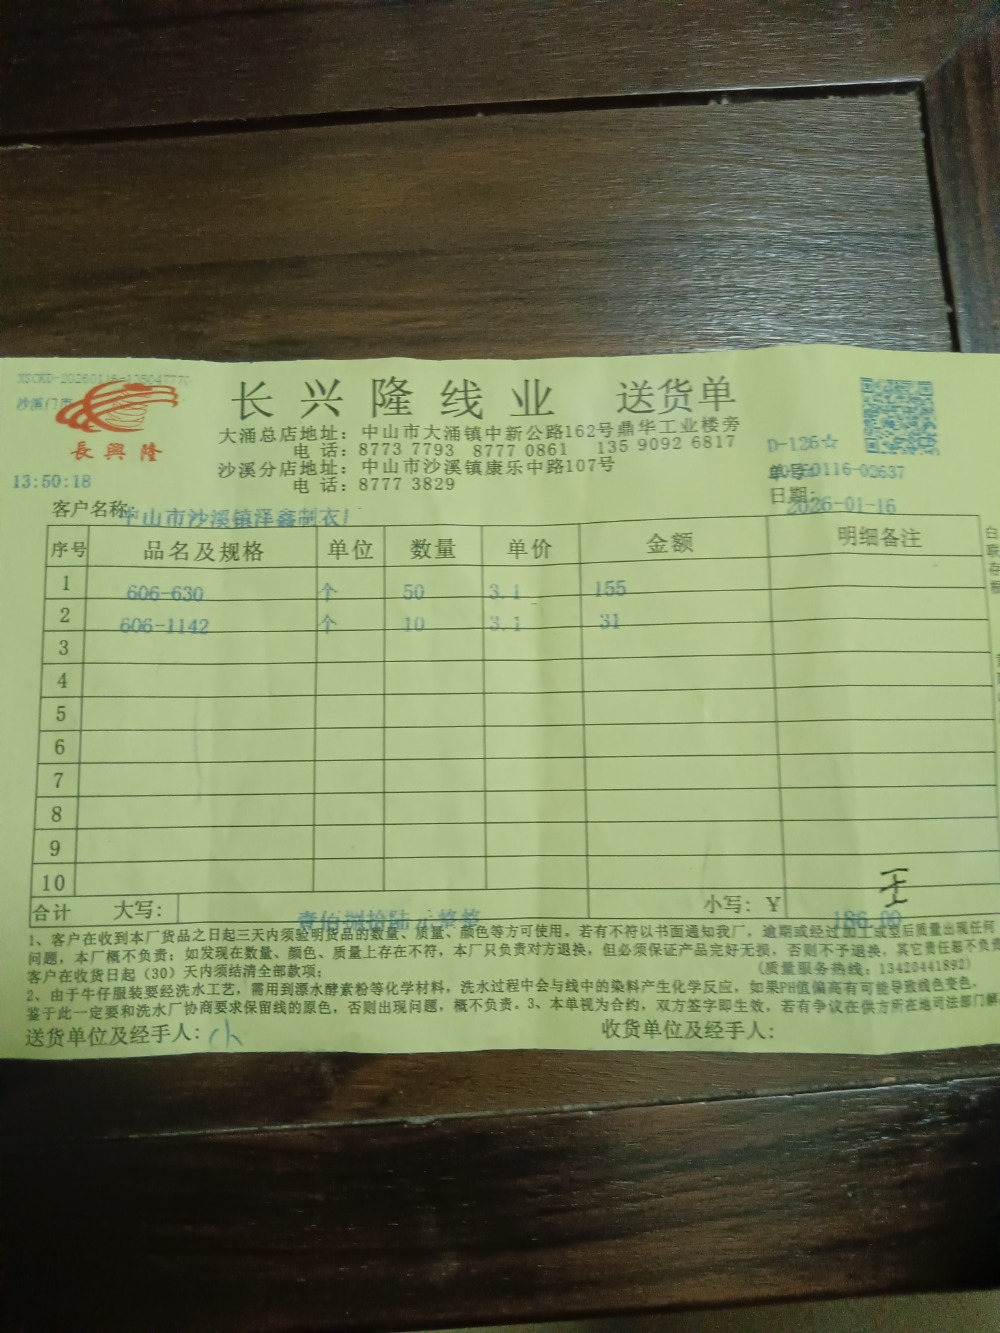 XSCKD-20260116-135047770
沙溪门市
長興隆
13:50:18
长兴隆线业 送货单
大涌总店地址：中山市大涌镇中新公路162号鼎华工业楼旁
电话：8773 7793 8777 0861 135 9092 6817
沙溪分店地址：中山市沙溪镇康乐中路107号
电话：8777 3829
D-126☆
单号：20260116-02637
日期：2026-01-16
客户名称：中山市沙溪镇泽鑫制衣厂
序号 品名及规格 单位 数量 单价 金额 明细备注
1 606-630 个 50 3.1 155
2 606-1142 个 10 3.1 31
3
4
5
6
7
8
9
10
合计 大写：壹佰捌拾陆元整整 小写：￥186.00
1、客户在收到本厂货品之日起三天内须验明货品的数量、质量、颜色等方可使用。若有不符以书面通知我厂，逾期或经过加工成型后质量出现任何
问题，本厂概不负责；如发现在数量、颜色、质量上存在不符，本厂只负责对方退换，但必须保证产品完好无损，否则不予退换，其它责任恕不负责
客户在收货日起（30）天内须结清全部款项；（质量服务热线：13420441892）
2、由于牛仔服装要经洗水工艺，需用到漂水酵素粉等化学材料，洗水过程中会与线中的染料产生化学反应，如果PH值偏高有可能导致线色变色，
鉴于此一定要和洗水厂协商要求保留线的原色，否则出现问题，概不负责。3、本单视为合约，双方签字即生效，若有争议在供方所在地司法部门解
送货单位及经手人：小 收货单位及经手人：